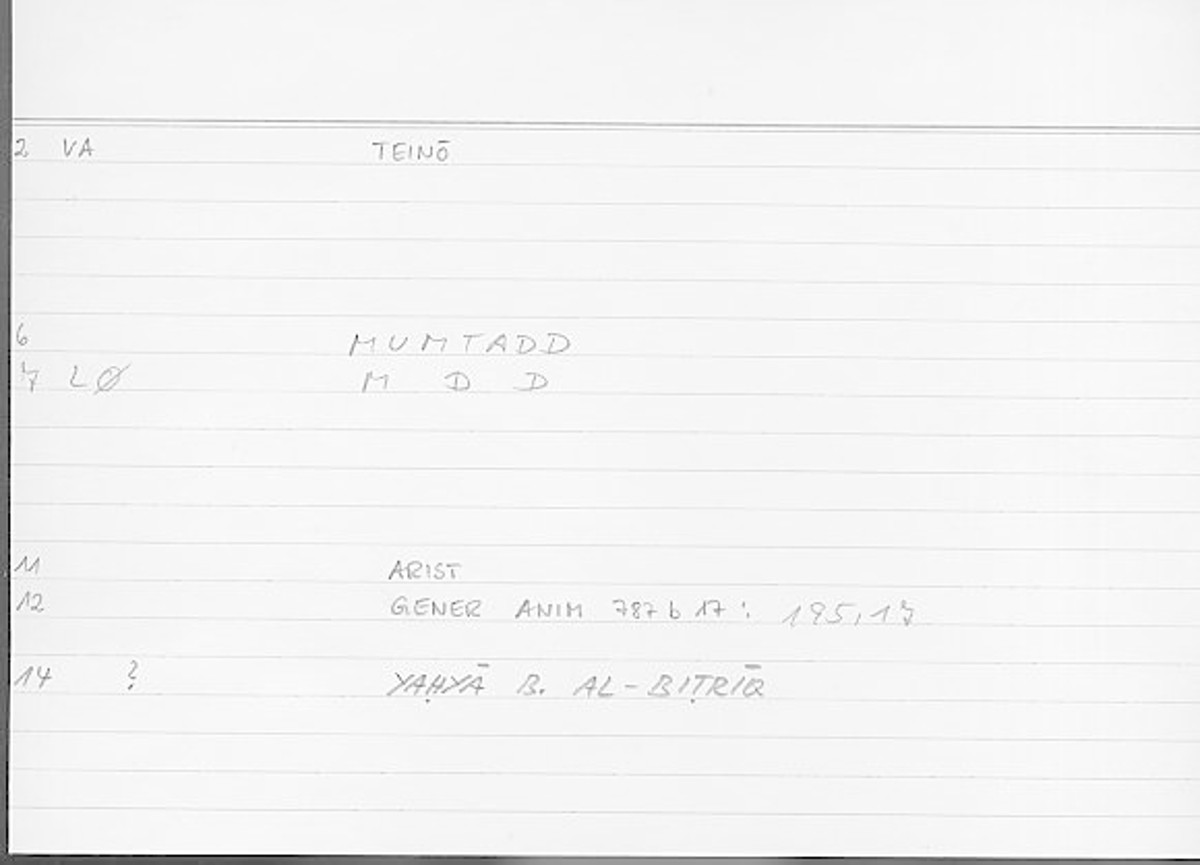 2 VA TEINŌ
6 MUMTADD
7 LØ M D D
11 ARIST
12 GENER ANIM 787 b 17 : 195,17
14 ? YAḤYĀ B. AL-BIṬRĪQ